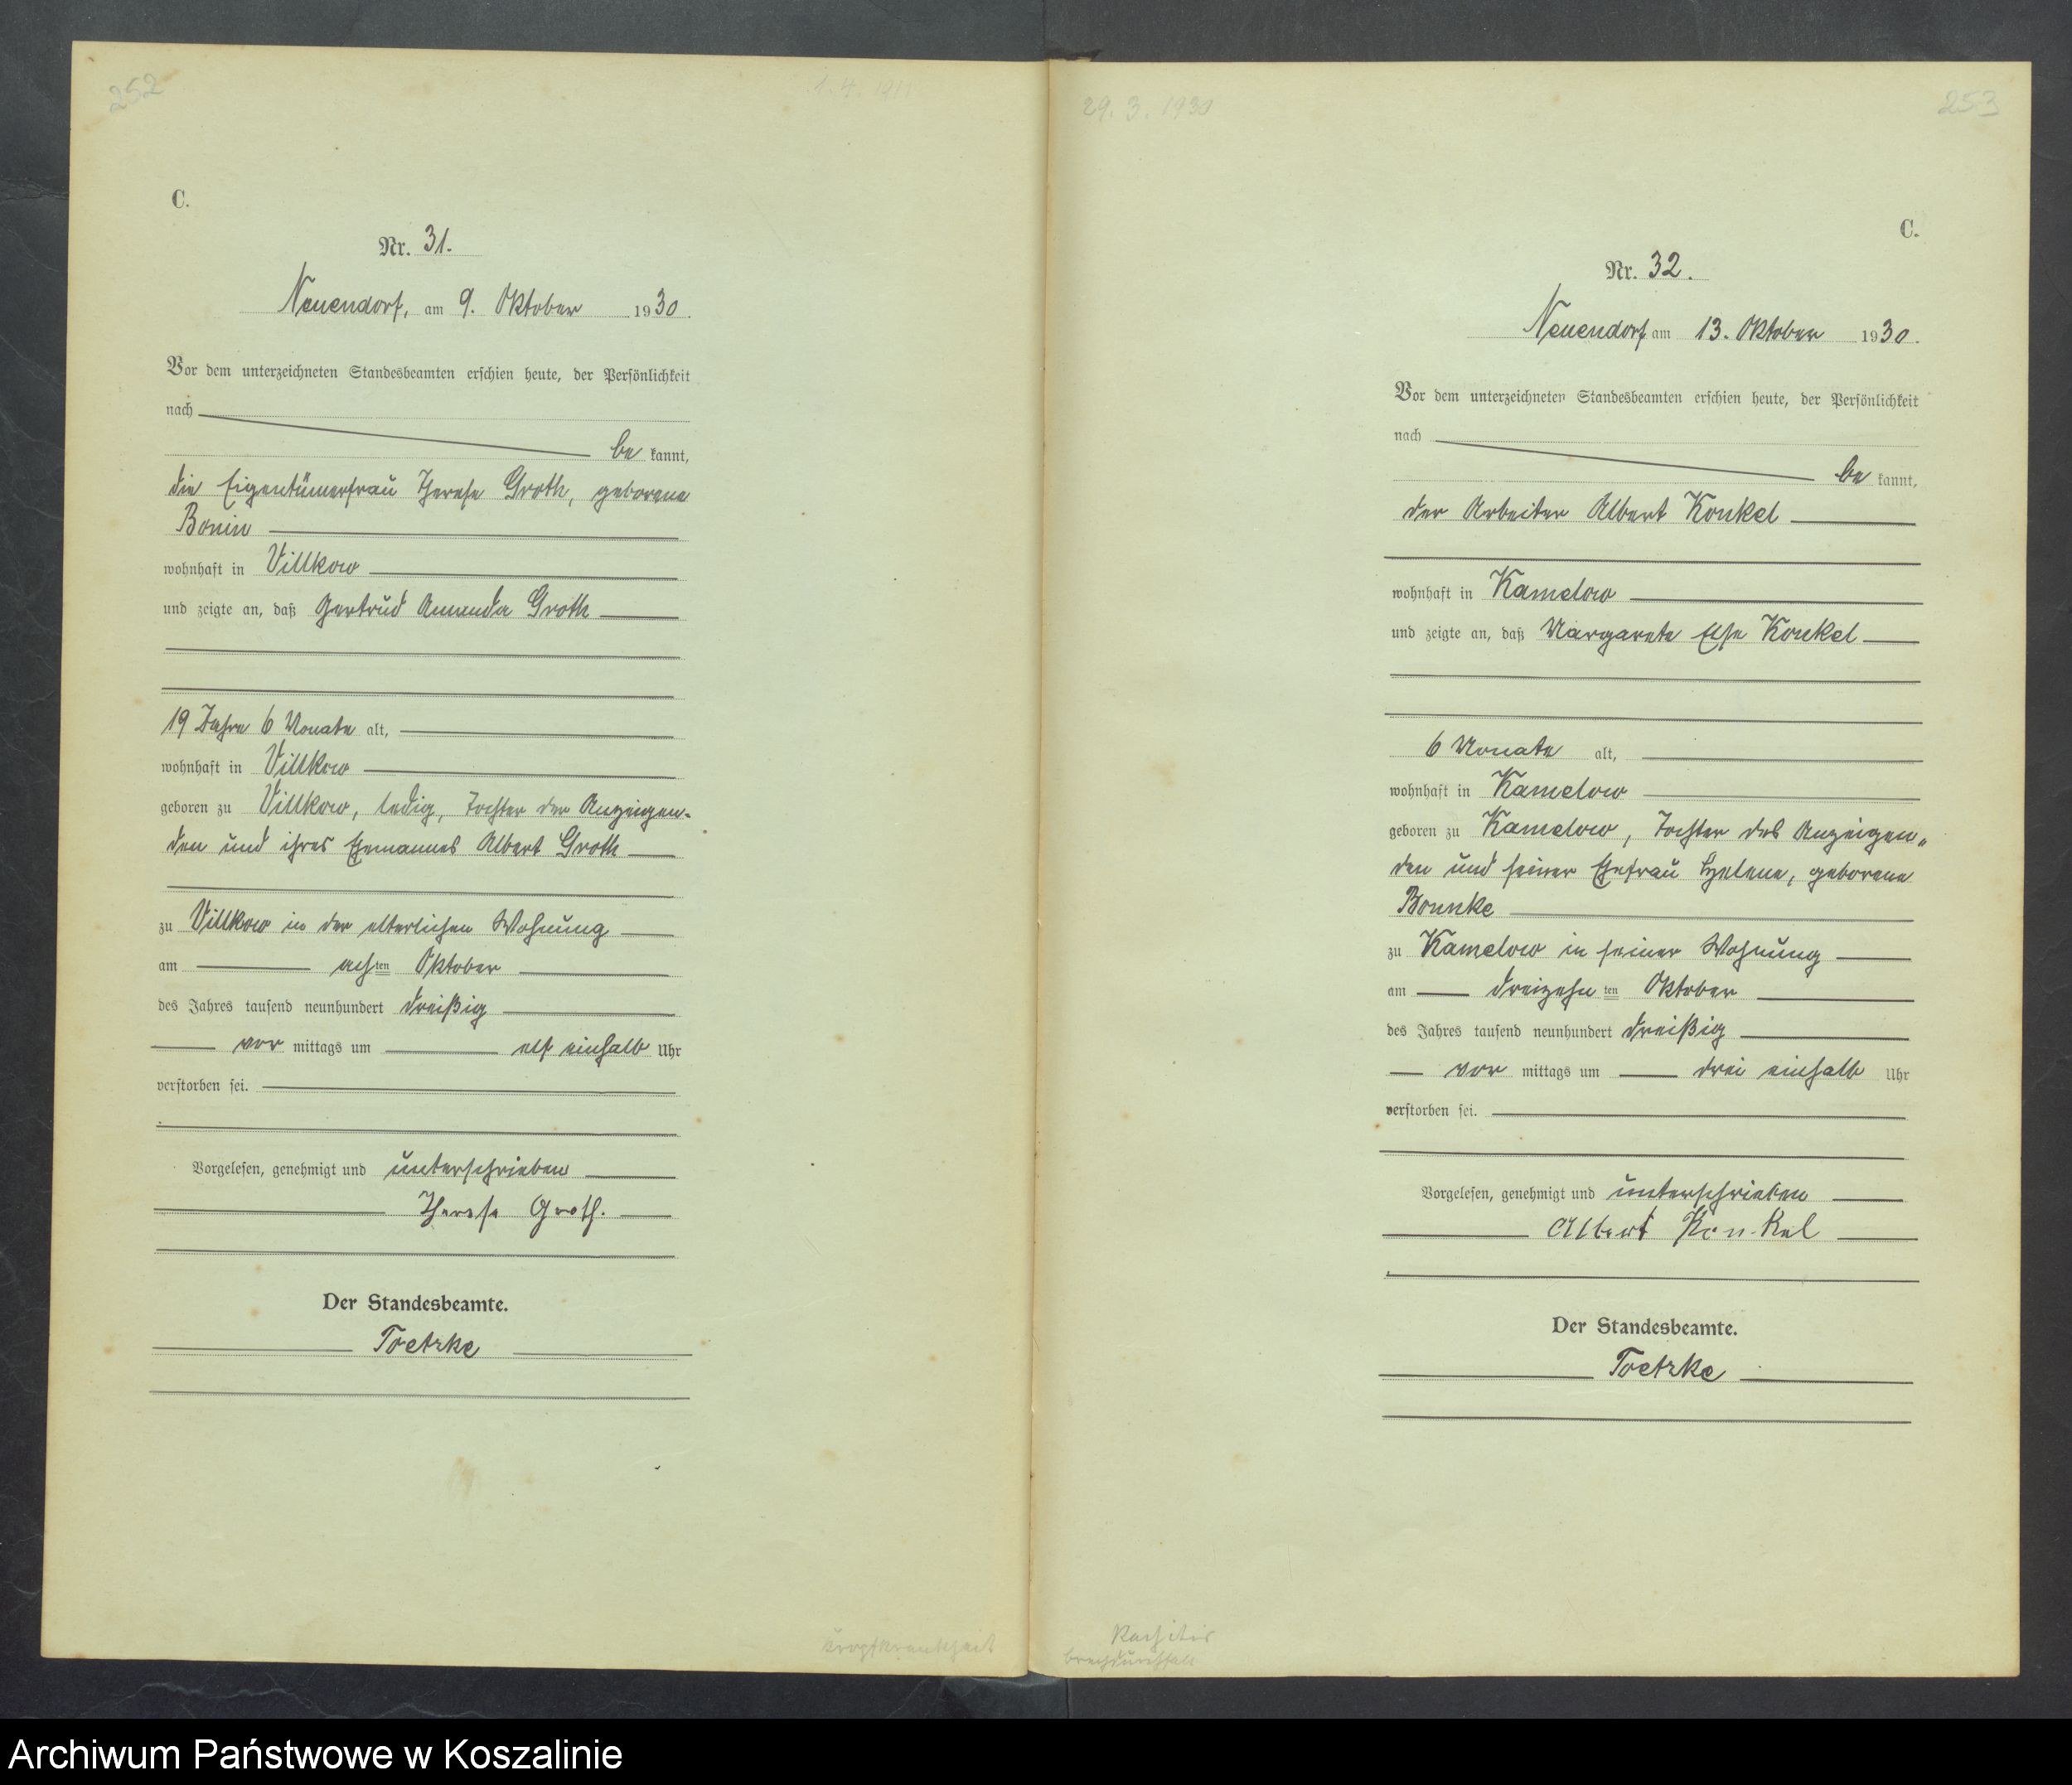 252
1. 4. 1911
C.
Nr. 31.
Neuendorf, am 9. Oktober 1930.
Vor dem unterzeichneten Standesbeamten erschien heute, der Persönlichkeit
nach
be kannt,
die Eigentümerfrau Therese Groth, geborene
Bonin
wohnhaft in Villkow
und zeigte an, daß Gertrud Amanda Groth
19 Jahre 6 Monate alt,
wohnhaft in Villkow
geboren zu Villkow, ledig, Tochter der Anzeigen-
den und ihres Ehemannes Albert Groth
zu Villkow in der elterlichen Wohnung
am achten Oktober
des Jahres tausend neunhundert dreißig
vor mittags um elf einhalb Uhr
verstorben sei.
Vorgelesen, genehmigt und unterschrieben
Therese Groth.
Der Standesbeamte.
Toetzke
Kropfkrankheit
29. 3. 1930
253
C.
Nr. 32.
Neuendorf am 13. Oktober 1930.
Vor dem unterzeichneten Standesbeamten erschien heute, der Persönlichkeit
nach
be kannt,
der Arbeiter Albert Konkel
wohnhaft in Kamelow
und zeigte an, daß Margarete Else Konkel
6 Monate alt,
wohnhaft in Kamelow
geboren zu Kamelow, Tochter des Anzeigen„
den und seiner Ehefrau Helene, geborene
Bonnke
zu Kamelow in seiner Wohnung
am dreizehn ten Oktober
des Jahres tausend neunhundert dreißig
vor mittags um drei einhalb Uhr
verstorben sei.
Vorgelesen, genehmigt und unterschrieben
Albert Konkel
Der Standesbeamte.
Toetzke
Rachitis
Brechdurchfall
Archiwum Państwowe w Koszalinie